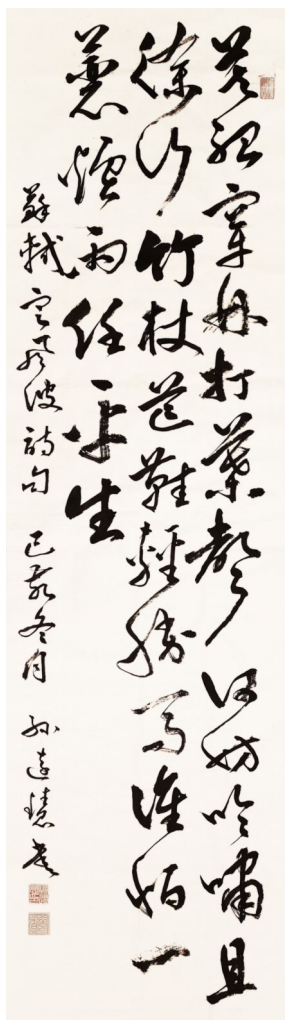 莫聽穿林打葉聲何妨吟嘯且
徐行竹杖芒鞋輕勝馬誰怕一
蓑煙雨任平生
蘇軾定風波詩句 己亥冬月 孫達書